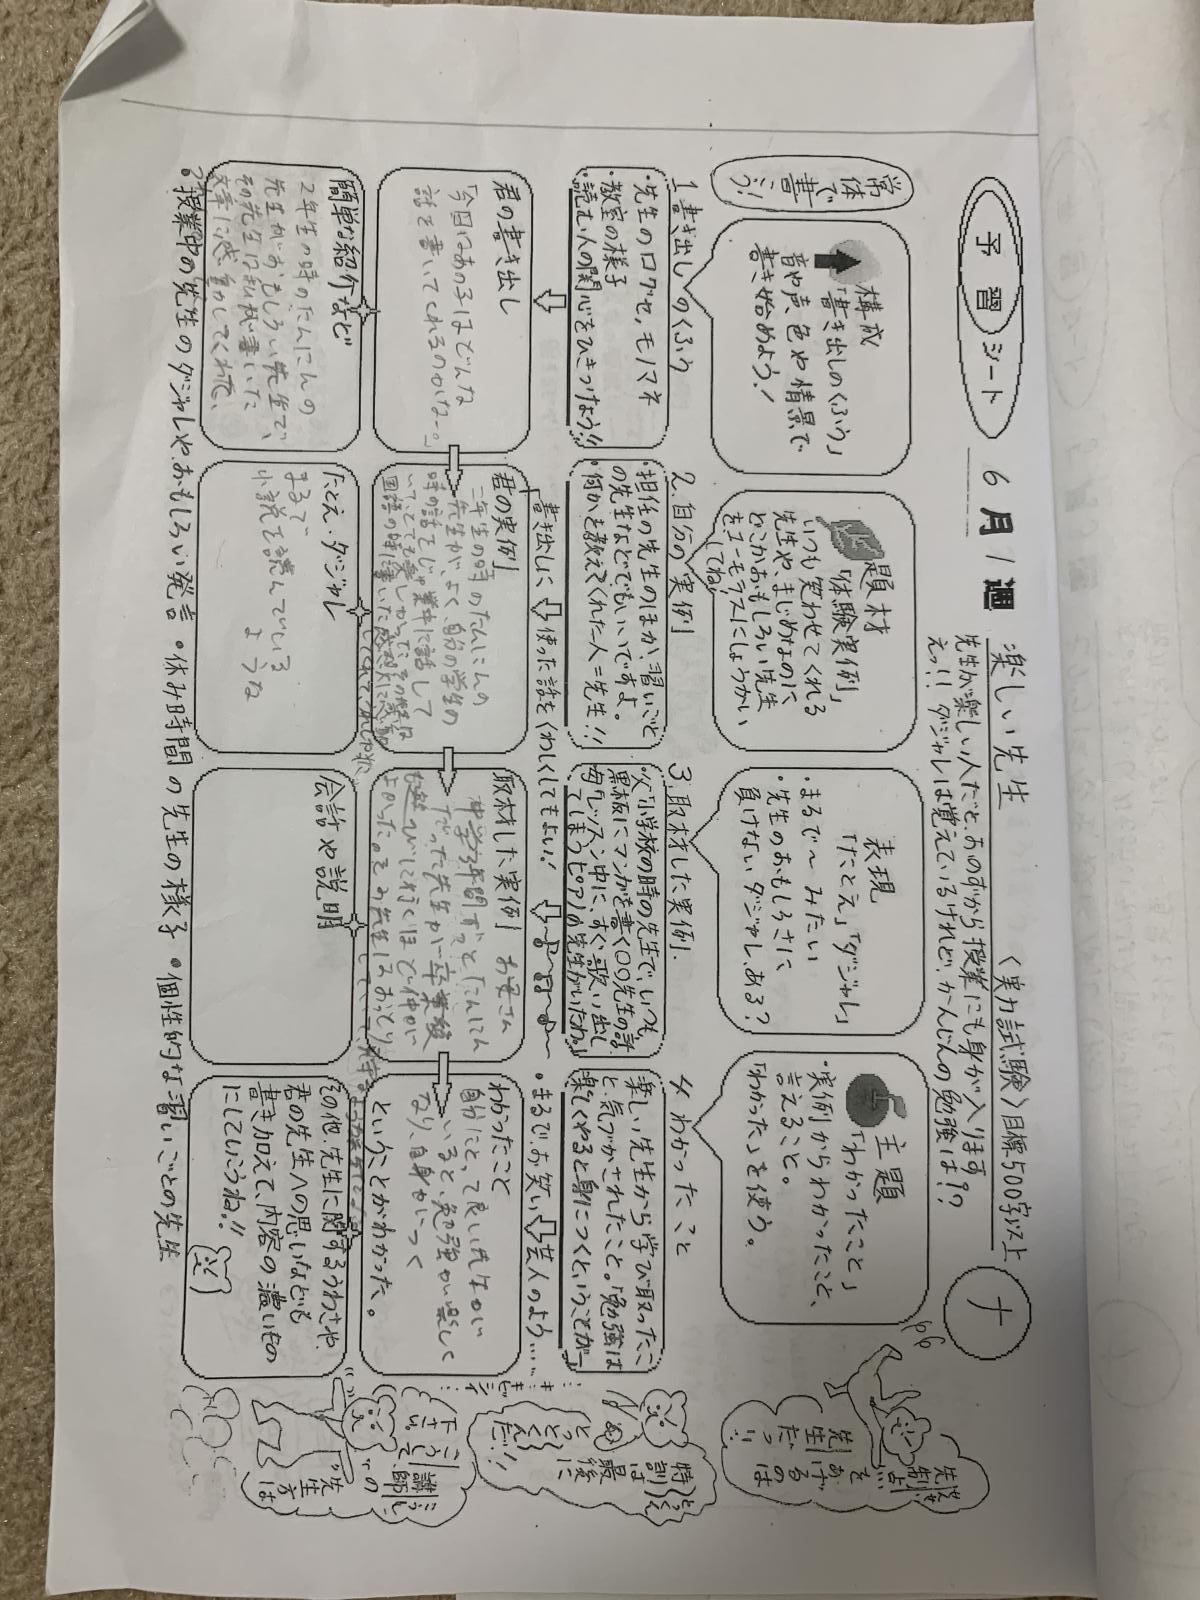 予習シート
6月1週
楽しい先生
〈実力試験〉目標500字以上
先生が楽しい人だと、おのずから授業にも身が入ります。
えっ!! ダジャレは覚えているけれど、かんじんの勉強は!?
常体で書こう!
構成
「書き出しのくふう」
音や声、色や情景で
書き始めよう!
題材
「体験実例」
いつも笑わせてくれる
先生や、まじめなのに
どこかおもしろい先生
を、ユーモラスにしょうかい
してね!
表現
「たとえ」「ダジャレ」
・まるで〜みたい
・先生のおもしろさに
負けないダジャレ、ある?
主題
「わかったこと」
・実例からわかったこと、
言えること。
「わかった」を使う。
1.書き出しのくふう
・先生の口グセ、モノマネ
・教室の様子
・読む人の関心をひきつけよう!!
2.自分の実例
・担任の先生のほか、習いごと
の先生などでもいいですよ。
・何かを教えてくれた人=先生!!
3.取材した実例.
黒板にマンガを書く〇〇先生の話
毎レッスン中に、すぐ歌い出し
てしまうピアノの先生がいたわ。」
4.わかったこと
楽しい先生から学び取ったこ
と、気づかされたこと。「勉強は
楽しくやると身につくということが—
書き出しに使った話をくわしくしてもよい!
・まるで、お笑い芸人のよう……
君の書き出し
「今日はあの子はどんな
話を書いてくれるのかなー。」
君の実例
二年生の時のたんにんの
先生が、よく、自分の学生の
時の話をじゅ業中に話して
いて、とても楽しかった。
取材した実例 お母さん
中学3年間ずっとたんにん
だった先生が、卒業後
も遊びに行くほど仲が
よかった。
わかったこと
自分にとって良い先生が
いると、勉強が楽しく
なり、自身がつく
ということがわかった。
簡単な紹介など
2年生の時のたんにんの
先生がおもしろい先生で、
その先生は私が書いた
文章に感動してくれた、
たとえ・ダジャレ
まるで、
小説を読んでいる
ような
会話や説明
その他、先生に関するうわさや、
君の先生への思いなども
書き加えて、内容の濃いもの
にしていこうね!!
・授業中の先生のダジャレやおもしろい発言・休み時間の先生の様子・個性的な習いごとの先生
先生を
あげる
のは
特訓は
最後に
とっとくん
だ!!
講師の
先生方は